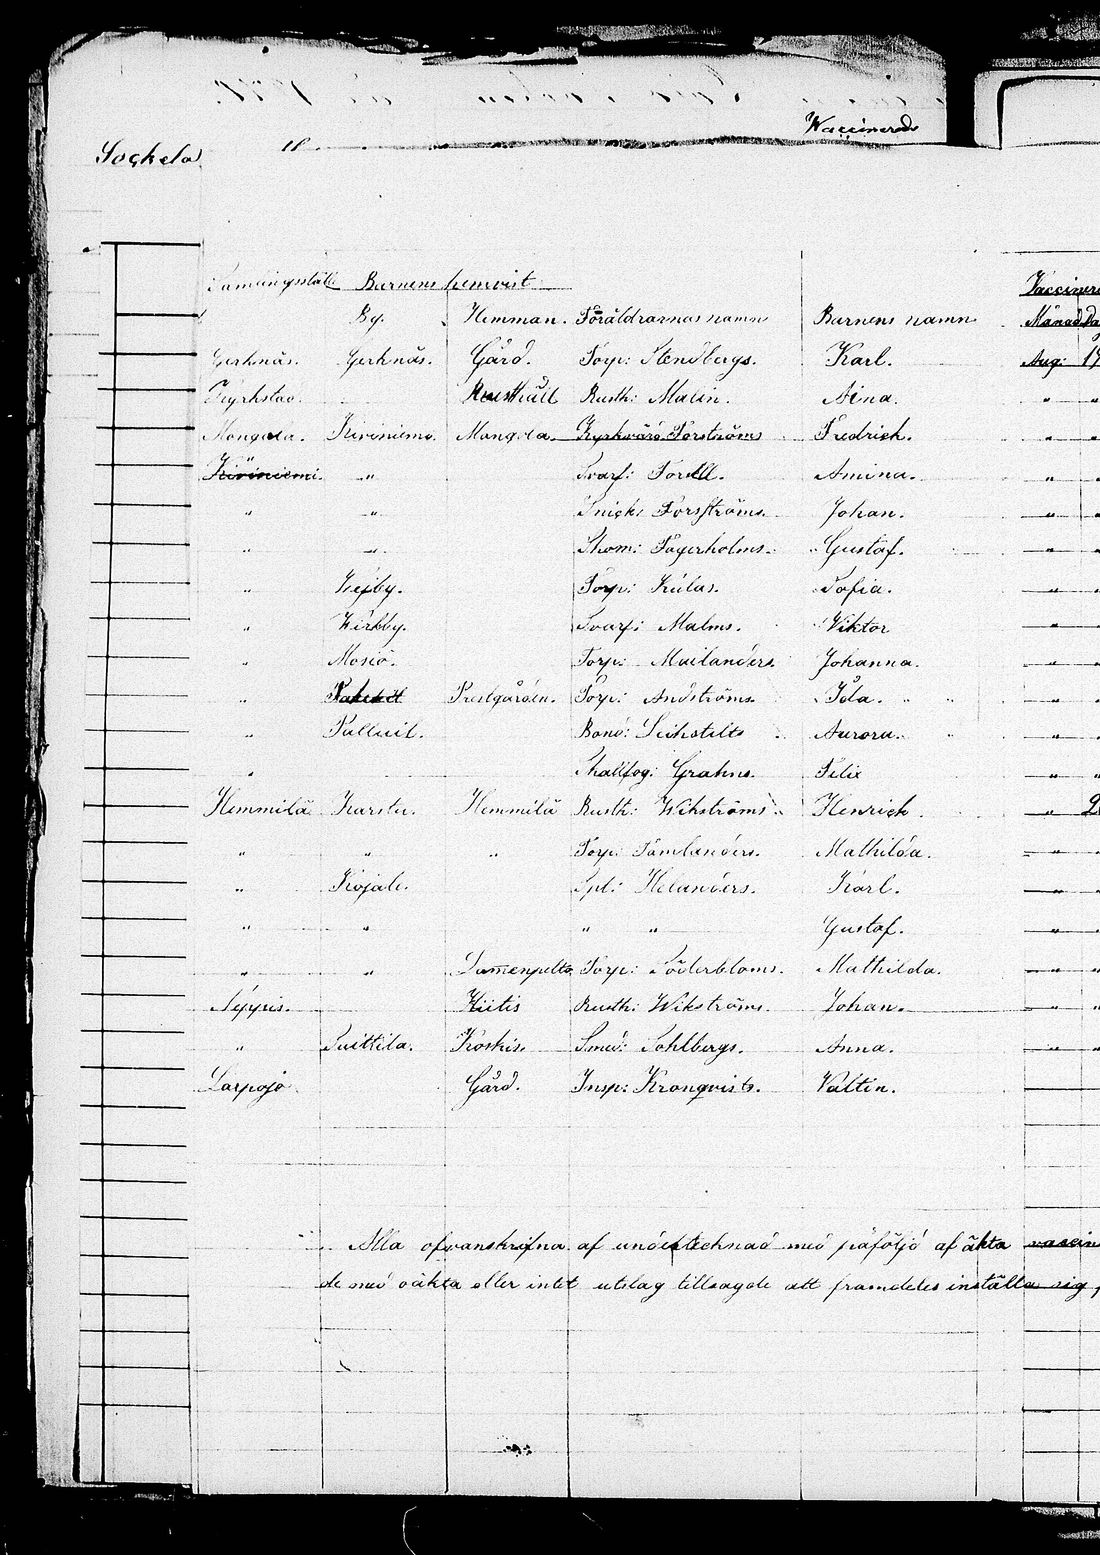 Vaccinerade
Samlingsställe Barnens hemvist
By. Hemman. Föräldrarnas namn Barnens namn Månad
Gerknäs. Gerknäs. Gård. Torp: Stendbergs. Karl. Aug: 19
Kyrkstad. Rusthåll Rusth: Malin. Aina. " "
Mongola. Kiviniemi. Mongola. Kyrkvärd Forströms Fredrick. " "
Kiviniemi. " Svarf: Forell. Amina. " "
" " Snick: Forsströms. Johan. " "
" " Skom: Fagerholms. Gustaf. " "
" Torp: Kulas. Sofia. " "
" Wirkby. Svarf: Malms. Viktor " "
" Mosiö. Torp: Mailanders. Johanna. " "
" Prestgården. Torp: Andströms. Ida. " "
" Bond: Aurora. " "
" Skallfog: Grahns. Felix " "
Hemmilä Karstu. Hemmilä Rusth: Wikströms Henrick. "
" " " Torp: Tamlanders. Mathilda. " "
" Spl: Helanders. Karl. " "
" " " " Gustaf. " "
" " Torp: Söderbloms. Mathilda. " "
Nyyris. Kiitis Rusth: Wikströms. Johan. " "
" Suittila. Koskis. Smed: Sohlbergs. Anna. " "
Larpojo Gård. Insp: Kronqvists. Valtin. " "
Alla ofvanskrifna af undertecknad med påföljd af äkta
de med oäkta eller intet utslag tillsagde att framdeles inställa sig,